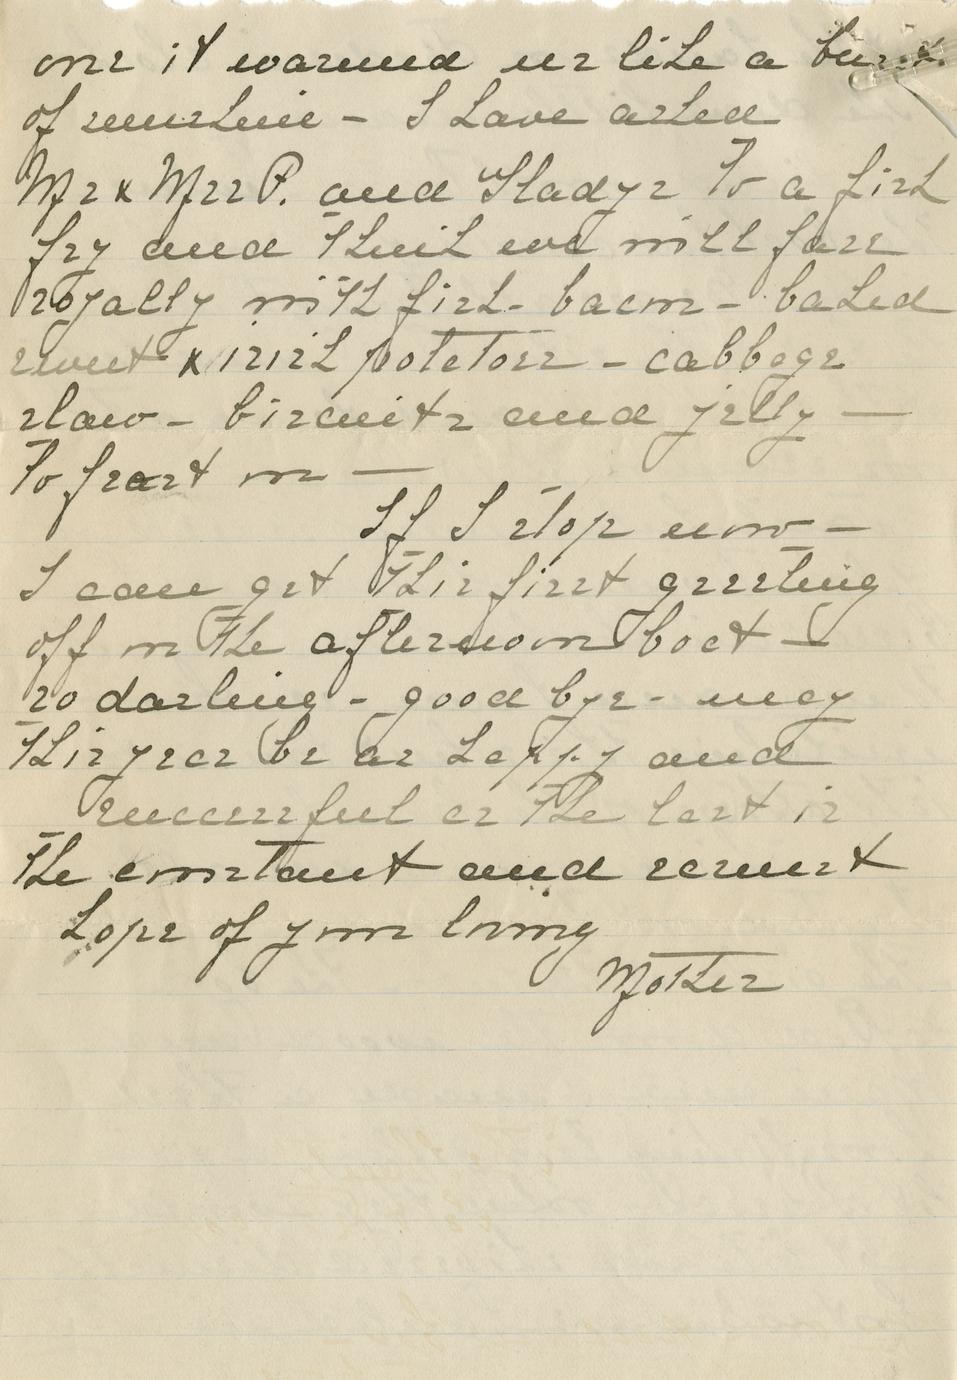 one it warmed us like a burst
of sunshine - I have asked
Mr & Mrs P. and Gladys to a fish
fry and think we will fare
royally with fish - bacon - baked
sweet & irish potatoes - cabbage
slaw - biscuits and jelly —
to feast on —
If I stop now —
I can get this first greeting
off on the afternoon boat —
so darling - good bye - may
this year be as happy and
successful as the last is
the constant and earnest
hope of your loving
Mother